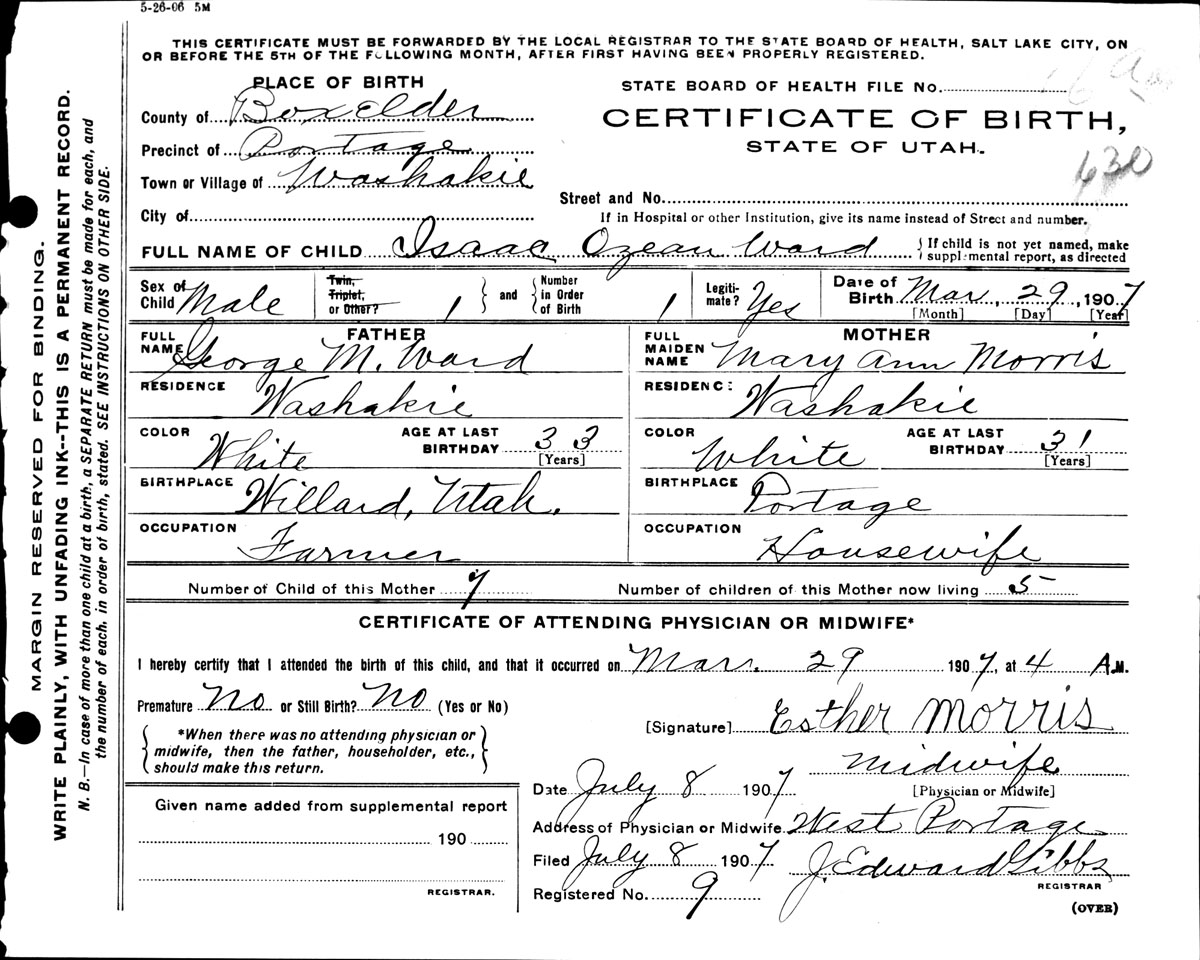 5-26-06 5M
THIS CERTIFICATE MUST BE FORWARDED BY THE LOCAL REGISTRAR TO THE STATE BOARD OF HEALTH, SALT LAKE CITY, ON
OR BEFORE THE 5TH OF THE FOLLOWING MONTH, AFTER FIRST HAVING BEEN PROPERLY REGISTERED.
PLACE OF BIRTH
County of Boxelder
Precinct of Portage
Town or Village of Washakie
City of
STATE BOARD OF HEALTH FILE No.
CERTIFICATE OF BIRTH,
STATE OF UTAH.
630
Street and No.
If in Hospital or other Institution, give its name instead of Street and number.
FULL NAME OF CHILD Isaac Ozean Ward { If child is not yet named, make
supplemental report, as directed
Sex of Child Male
Twin, Triplet, or Other? 1 } and { Number in Order of Birth 1
Legiti-mate? Yes
Date of Birth Mar, 29, 1907
[Month] [Day] [Year]
FATHER
FULL NAME George M. Ward
RESIDENCE Washakie
COLOR White AGE AT LAST BIRTHDAY 33 [Years]
BIRTHPLACE Willard, Utah.
OCCUPATION Farmer
MOTHER
FULL MAIDEN NAME Mary Ann Morris
RESIDENC: Washakie
COLOR White AGE AT LAST BIRTHDAY 31 [Years]
BIRTHPLACE Portage
OCCUPATION Housewife
Number of Child of this Mother 7 Number of children of this Mother now living 5
CERTIFICATE OF ATTENDING PHYSICIAN OR MIDWIFE*
I hereby certify that I attended the birth of this child, and that it occurred on Mar. 29 1907, at 4 A.M.
Premature No or Still Birth? No (Yes or No)
*When there was no attending physician or
midwife, then the father, householder, etc.,
should make this return.
[Signature] Esther Morris
Midwife
[Physician or Midwife]
Date July 8 1907
Address of Physician or Midwife West Portage
Filed July 8 1907 J. Edward Gibbs
REGISTRAR
Registered No. 9
(OVER)
Given name added from supplemental report
190
REGISTRAR.
MARGIN RESERVED FOR BINDING.
WRITE PLAINLY, WITH UNFADING INK--THIS IS A PERMANENT RECORD.
N. B.—In case of more than one child at a birth, a SEPARATE RETURN must be made for each, and
the number of each, in order of birth, stated. SEE INSTRUCTIONS ON OTHER SIDE.